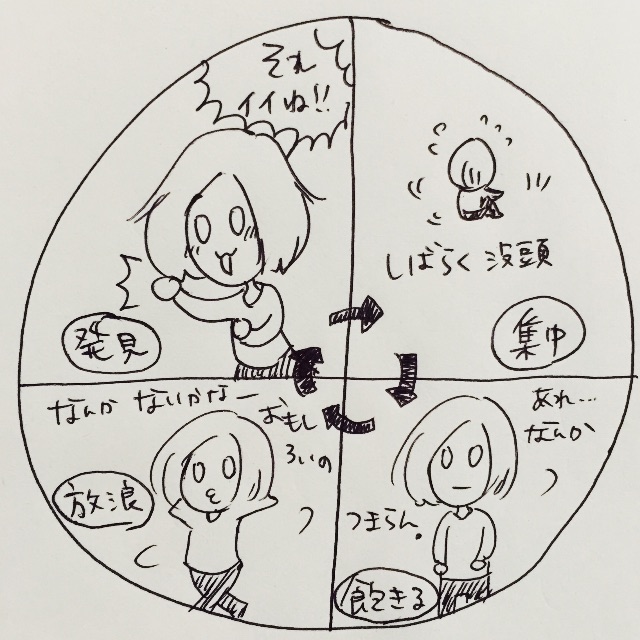 それ
イイね!!
発見
しばらく没頭
集中
あれ…
なんか
つまらん。
飽きる
なんか ないかなー
おもし
ろいの
放浪